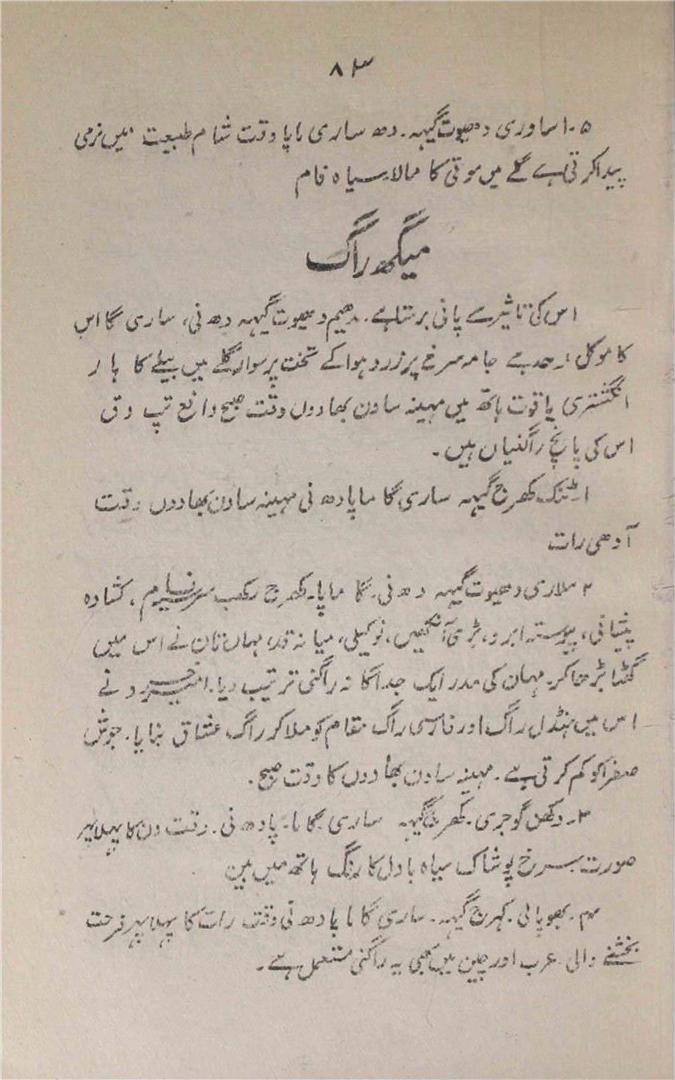 ۸۳
۵۔ اساوری دھیوت گیہہ۔ دھ ساری ماپا وقت شام طبیعت میں نرمی
پیدا کرتی ہے گلے میں موتی کا مالا سیاہ فام
میگھ راگ
اس کی تاثیر سے پانی برستا ہے۔ مدھیم دھیوت گیہہ دھ نی، ساری گا اس
کا موکل رعد ہے جامہ سرخ پر زرد ہوا کے تخت پر سوار گلے میں بیلے کا ہار
انگشتری یاقوت ہاتھ میں مہینہ ساون بھادوں وقت صبح دافع تپ دق
اس کی پانچ راگنیاں ہیں۔
۱۔ ٹنک کھرج گیہہ ساری گا ما پا دھ نی مہینہ ساون بھادوں وقت
آدھی رات
۲ ملاری دھیوت گیہہ دھ نی۔ گا ما پا۔ کھرج رکھب، کشادہ
پیشانی، پیوستہ ابرو، بڑی آنکھیں، نوکیلی، میانہ قد، میاں تان نے اس میں
گھٹا بڑھا کر۔ میاں کی جداگانہ راگنی ترتیب دیا۔ امیر خسرو نے
اس میں ہنڈل راگ اور فارسی راگ مقام کو ملا کر راگ عشاق بنایا۔ جوش
صفرا کو کم کرتی ہے۔ مہینہ ساون بھادوں کا وقت صبح۔
۳۔ دکھن گوجری۔ کھرج گیہہ ساری گا ما۔ پا دھ نی۔ وقت دن کا پہلا پہر
صورت سرخ پوشاک سیاہ بادل کا رنگ ہاتھ میں بین
۴۔ بھوپالی۔ کہرج گیہہ۔ ساری گا ما پا دھ نی وقت رات کا پہلا پہر فرحت
بخشنے والی۔ عرب اور چین میں بھی یہ راگنی مستعمل ہے۔